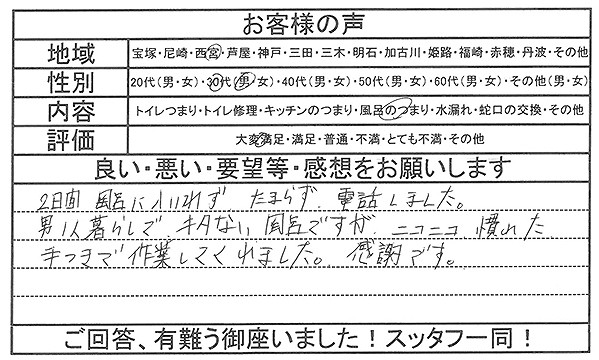 お客様の声
地域 宝塚・尼崎・西宮・芦屋・神戸・三田・三木・明石・加古川・姫路・福崎・赤穂・丹波・その他
性別 20代(男・女)・30代(男・女)・40代(男・女)・50代(男・女)・60代(男・女)・その他(男・女)
内容 トイレつまり・トイレ修理・キッチンのつまり・風呂のつまり・水漏れ・蛇口の交換・その他
評価 大変満足・満足・普通・不満・とても不満・その他
良い・悪い・要望等・感想をお願いします
2日間 風呂に入いれず たまらず、電話しました。
男1人暮らしで、キタない風呂ですが、ニコニコ 慣れた
手つきで作業してくれました。感謝です。
ご回答、有難う御座いました！スッタフ一同！